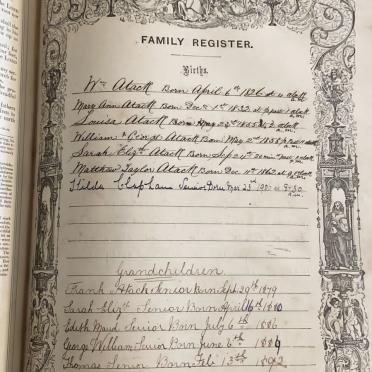 FAMILY REGISTER.
Births.
Wm Atack Born April 6th 1826 at 4 o'clock a.m.
Mary Ann Atack Born Dec 1st 1832 at o'clock a.m.
Louisa Atack Born May 28th 1855 o'clock a.m.
William & George Atack Born May 2nd 1858 o'clock a.m.
Sarah Elizth Atack Born Sep 24 o'clock a.m.
Matthew Taylor Atack Born Dec 11th 1862 at o'clock a.m.
Hilda Clapham Senior Born Mar 23rd 1900 at 8-30 a.m.
Grandchildren
Frank Atack Senior Born Sept 29th 1879
Sarah Elizth Senior Born April 16th 1880
Edith Maud Senior Born July 6th 1886
George William Senior Born June 8th 1889
Thomas Senior Born Feb 13th 1892